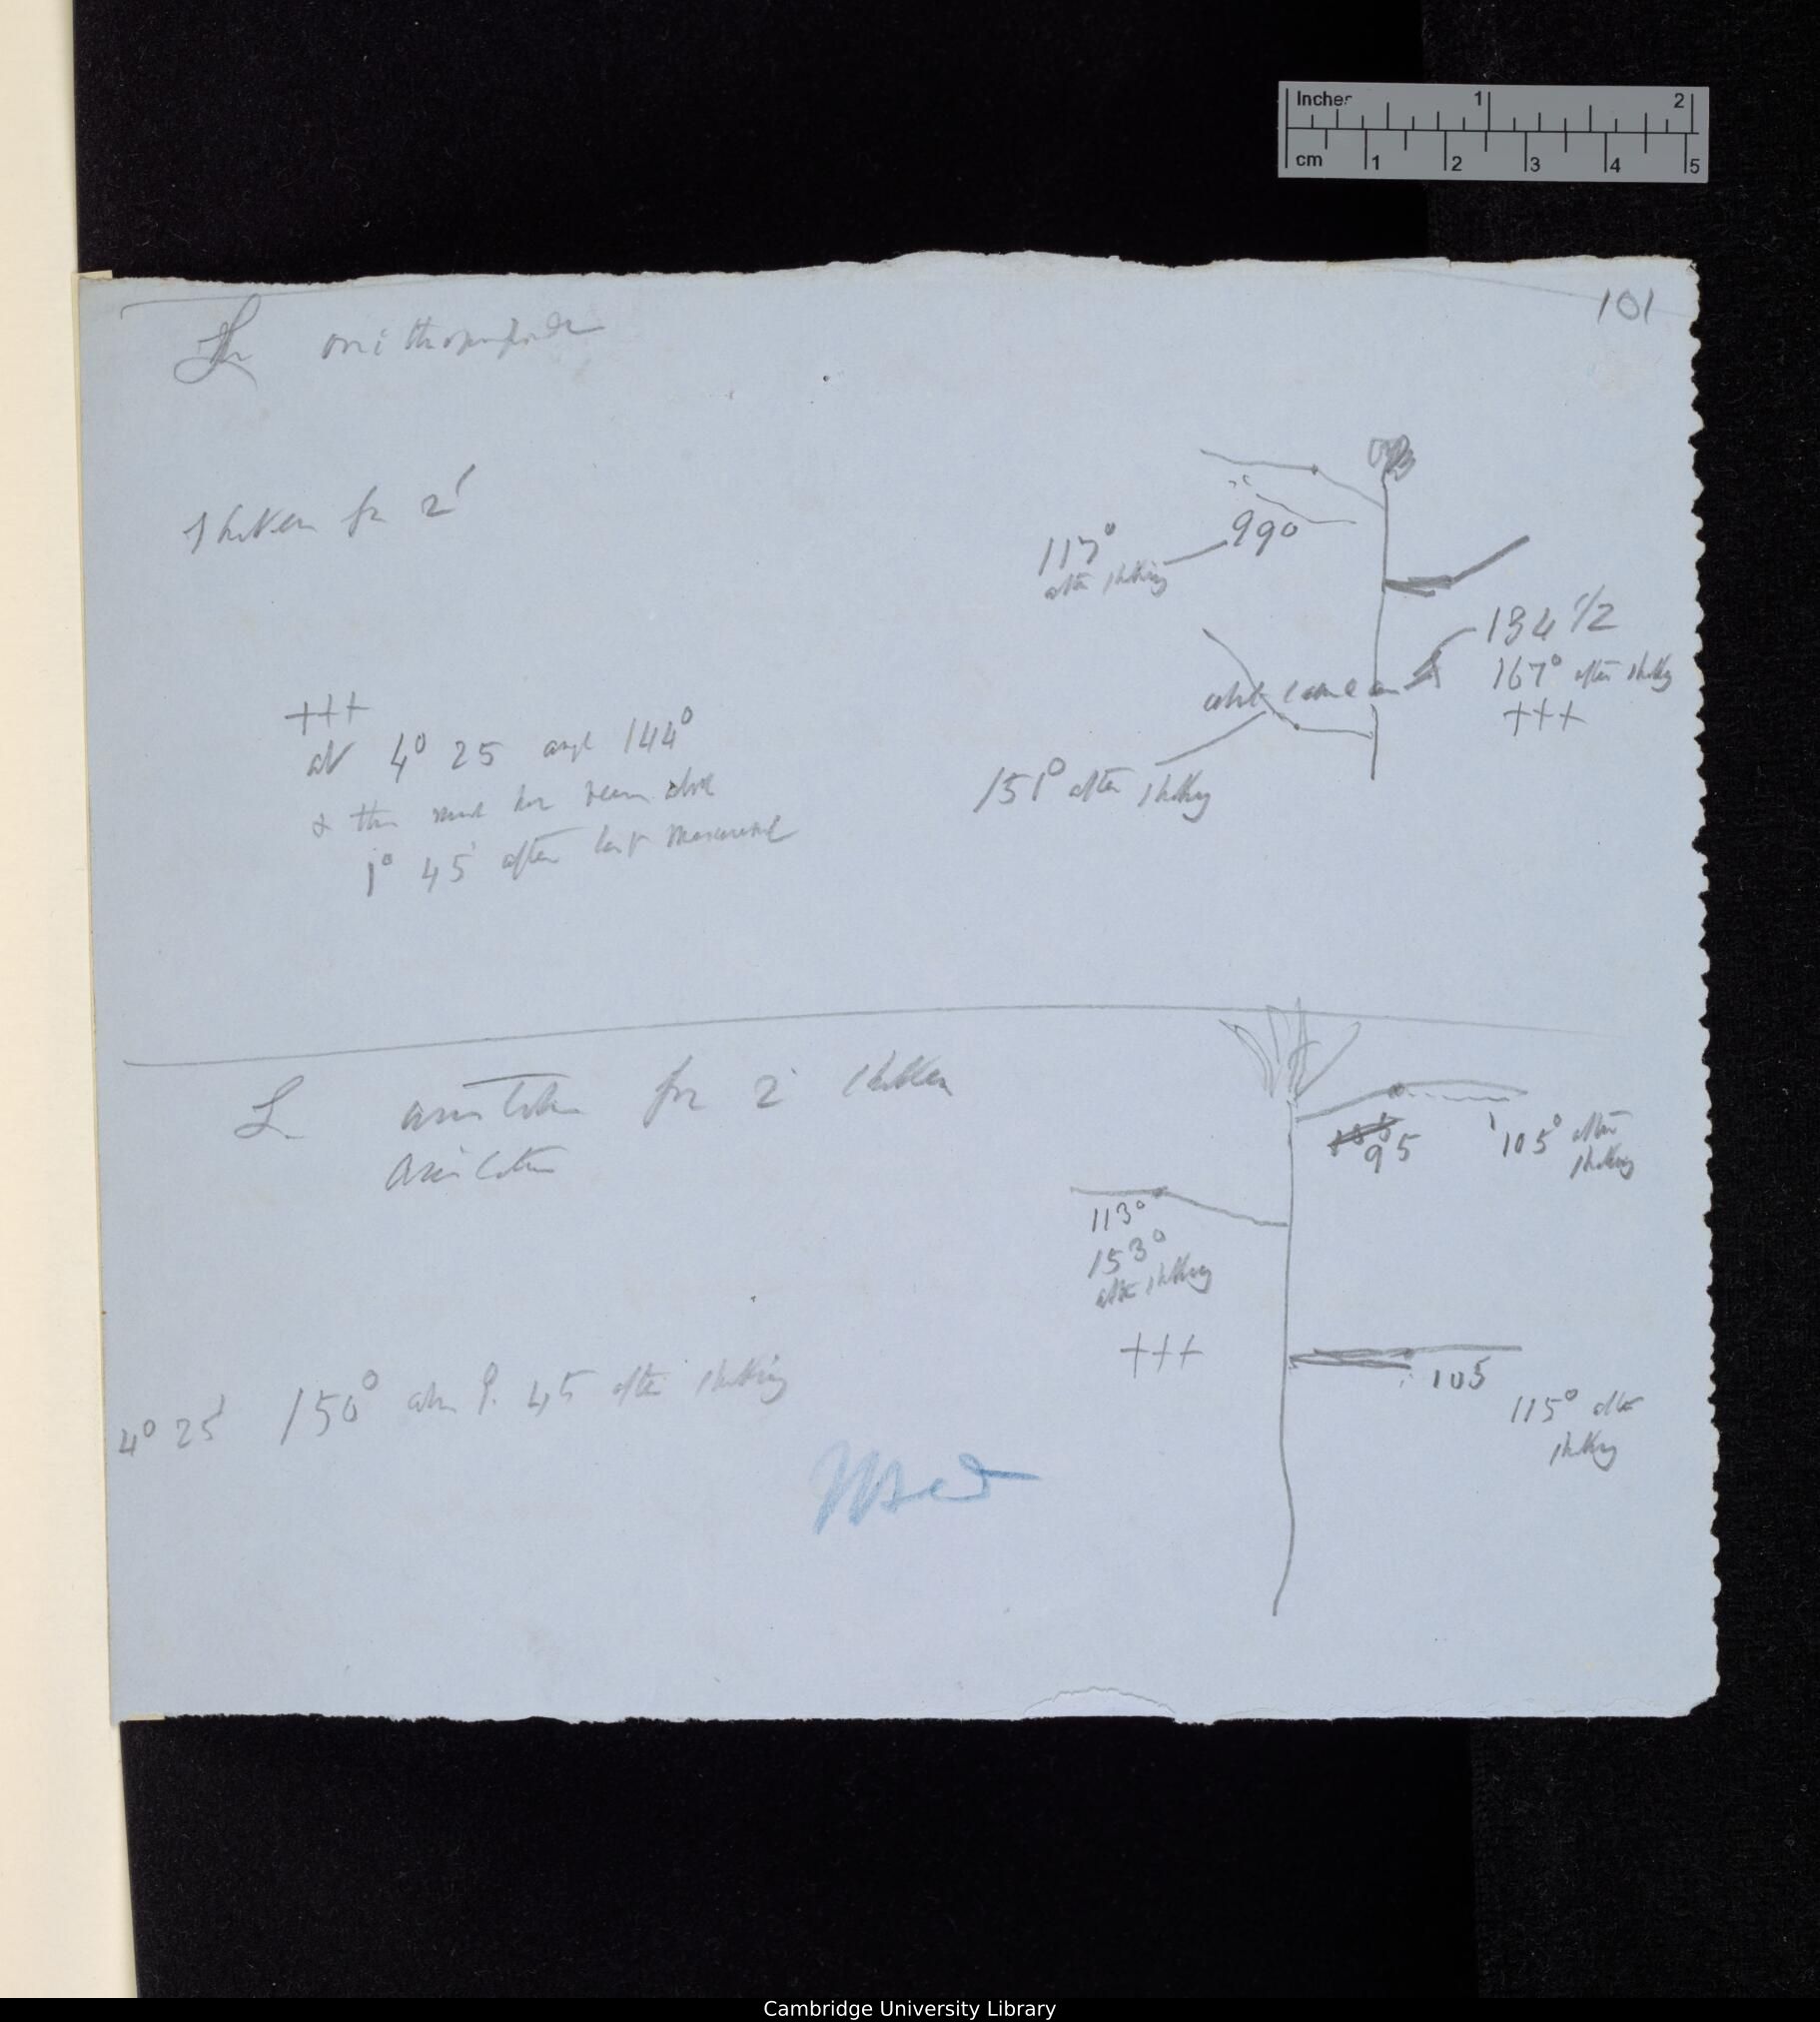 Inches 1 2
cm 1 2 3 4 5
101
L ornithopopoides
Shaken for 2'
990
117°
after shaking
134 1/2
167° after shaking
+++
151° after shaking
+++
at 4° 25 angle 144°
& this must have been about
1° 45' after last measurement
L for 2' shaken
95
105° after
shaking
113°
153°
after shaking
+++
105
115° after
shaking
4° 25' 150° 45 after shaking
Used
Cambridge University Library